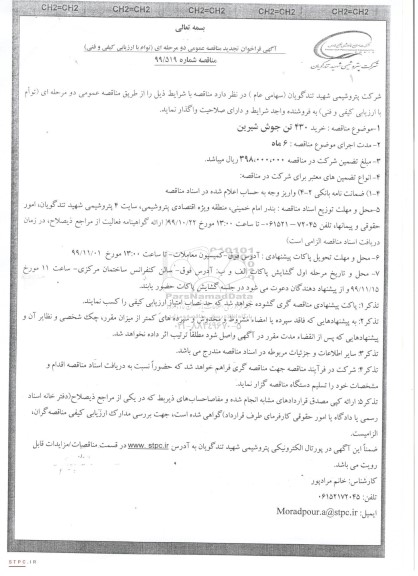 CH2=CH2 CH2=CH2 CH2=CH2 CH2=CH2 CH2=CH2
بسمه تعالی
آگهی فراخوان تجدید مناقصه عمومی دو مرحله ای (توام با ارزیابی کیفی و فنی)
مناقصه شماره ۹۹/۵۱۹
شرکت پتروشیمی شهید تندگویان
شرکت پتروشیمی شهید تندگویان (سهامی عام ) در نظر دارد مناقصه با شرایط ذیل را از طریق مناقصه عمومی دو مرحله ای (توأم
با ارزیابی کیفی و فنی) به فروشنده واجد شرایط و دارای صلاحیت واگذار نماید.
۱-موضوع مناقصه : خرید ۴۳۰ تن جوش شیرین
۲-مدت اجرای موضوع مناقصه : ۶ ماه
۳- مبلغ تضمین شرکت در مناقصه: ۳۹۸,۰۰۰,۰۰۰ ریال میباشد.
۴-انواع تضمین های معتبر برای شرکت در مناقصه:
۴-۱) ضمانت نامه بانکی ۴-۲) واریز وجه به حساب اعلام شده در اسناد مناقصه
۵-محل و مهلت توزیع اسناد مناقصه : بندر امام خمینی، منطقه ویژه اقتصادی پتروشیمی، سایت ۴ پتروشیمی شهید تندگویان، امور
حقوقی و پیمانها، تلفن ۷۲۰۴۵-۰۶۱۵۲۱ تا ساعت ۱۳:۰۰ مورخ ۹۹/۱۰/۲۲( ارائه گواهینامه فعالیت از مراجع ذیصلاح، در زمان
دریافت اسناد مناقصه الزامی است)
۶- محل و مهلت تحویل پاکات پیشنهادی : آدرس فوق-کمیسیون معاملات- تا ساعت ۱۳:۰۰ مورخ ۹۹/۱۱/۰۱
۷- محل و تاریخ مرحله اول گشایش پاکات الف و ب: آدرس فوق- سالن کنفرانس ساختمان مرکزی- ساعت ۱۱ مورخ
۹۹/۱۱/۱۵ و از پیشنهاد دهندگان دعوت می شود در جلسه گشایش پاکات حضور یابند.
تذکر۱: پاکت پیشنهادی مناقصه گری گشوده خواهد شد که حد نصاب امتیاز ارزیابی کیفی را کسب نمایند.
تذکر۲: به پیشنهادهایی که فاقد سپرده یا امضاء مشروط و مخدوش و سپرده های کمتر از میزان مقرر، چک شخصی و نظایر آن و
پیشنهادهایی که پس از انقضاء مدت مقرر در آگهی واصل شود مطلقاً ترتیب اثر داده نخواهد شد.
تذکر۳: سایر اطلاعات و جزئیات مربوطه در اسناد مناقصه مندرج می باشد.
تذکر۴: شرکت در فرآیند مناقصه جهت مناقصه گری فراهم خواهد شد که حضوراً نسبت به دریافت اسناد مناقصه اقدام و
مشخصات خود را تسلیم دستگاه مناقصه گزار نماید.
تذکر۵: ارائه کپی مصدق قراردادهای مشابه انجام شده و مفاصاحسابهای ذیربط که در یکی از مراجع ذیصلاح(دفتر خانه اسناد
رسمی یا دادگاه یا امور حقوقی کارفرمای طرف قرارداد)گواهی شده است، جهت بررسی مدارک ارزیابی کیفی مناقصه‌گران،
الزامیست.
ضمناً این آگهی در پورتال الکترونیکی پتروشیمی شهید تندگویان به آدرس www. stpc.ir در قسمت مناقصات/مزایدات قابل
رویت می باشد.
کارشناس: خانم مرادپور
تلفن: ۰۶۱۵۲۱۷۲۰۴۵
ایمیل: Moradpour.a@stpc.ir
ParsNamadData
۰۲۱-۸۸۳۴۹۶۷۰-۵
STPC.IR